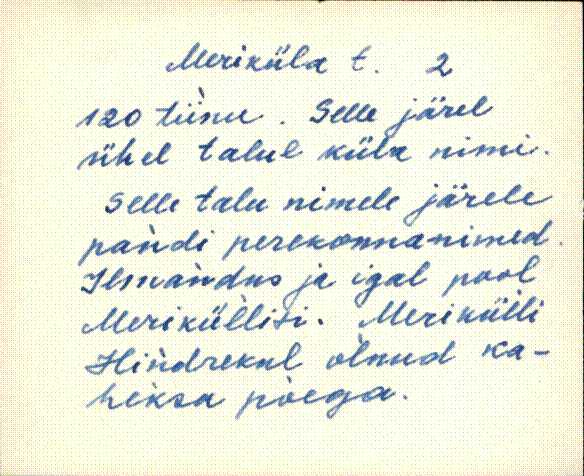 Meriküla t. 2
120 tiinu. Selle järel
ühel talul küla nimi.
Selle talu nimele järele
pàndi perekonnanimed.
Ilmàndus ja igal pool
Meriküllisi. Merikülli
Hìndrekul òlnud ka-
heksa pòega.